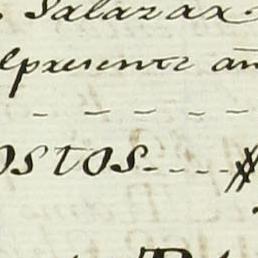 . Salazar.
lpresente añ
- - - - -
ostos---- $